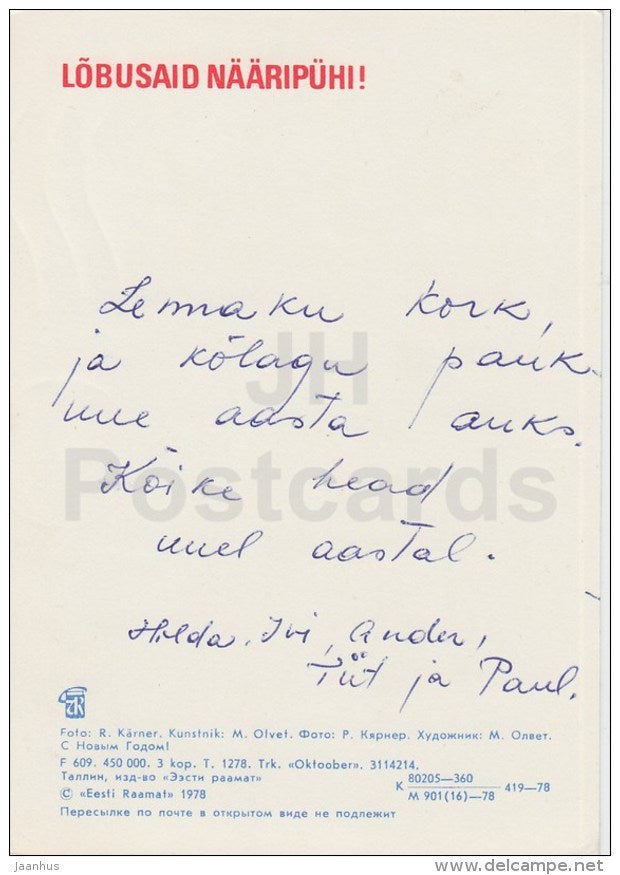 LÕBUSAID NÄÄRIPÜHI!
Lennaku kork,
ja kõlagu pauk
uue aasta auks.
Kõike head
uuel aastal.
Hilda, Ivi, Ander,
Tiit ja Paul.
JH
Postcards
Foto: R. Kärner. Kunstnik: M. Olvet. Фото: Р. Кярнер. Художник: М. Олвет.
С Новым Годом!
F 609. 450 000. 3 kop. T. 1278. Trk. «Oktoober». 3114214.
Таллин, изд-во «Ээсти раамат»
© «Eesti Raamat» 1978
К 80205—360 / М 901(16)—78 419—78
Пересылке по почте в открытом виде не подлежит
jaanhus
www.delcampe.net